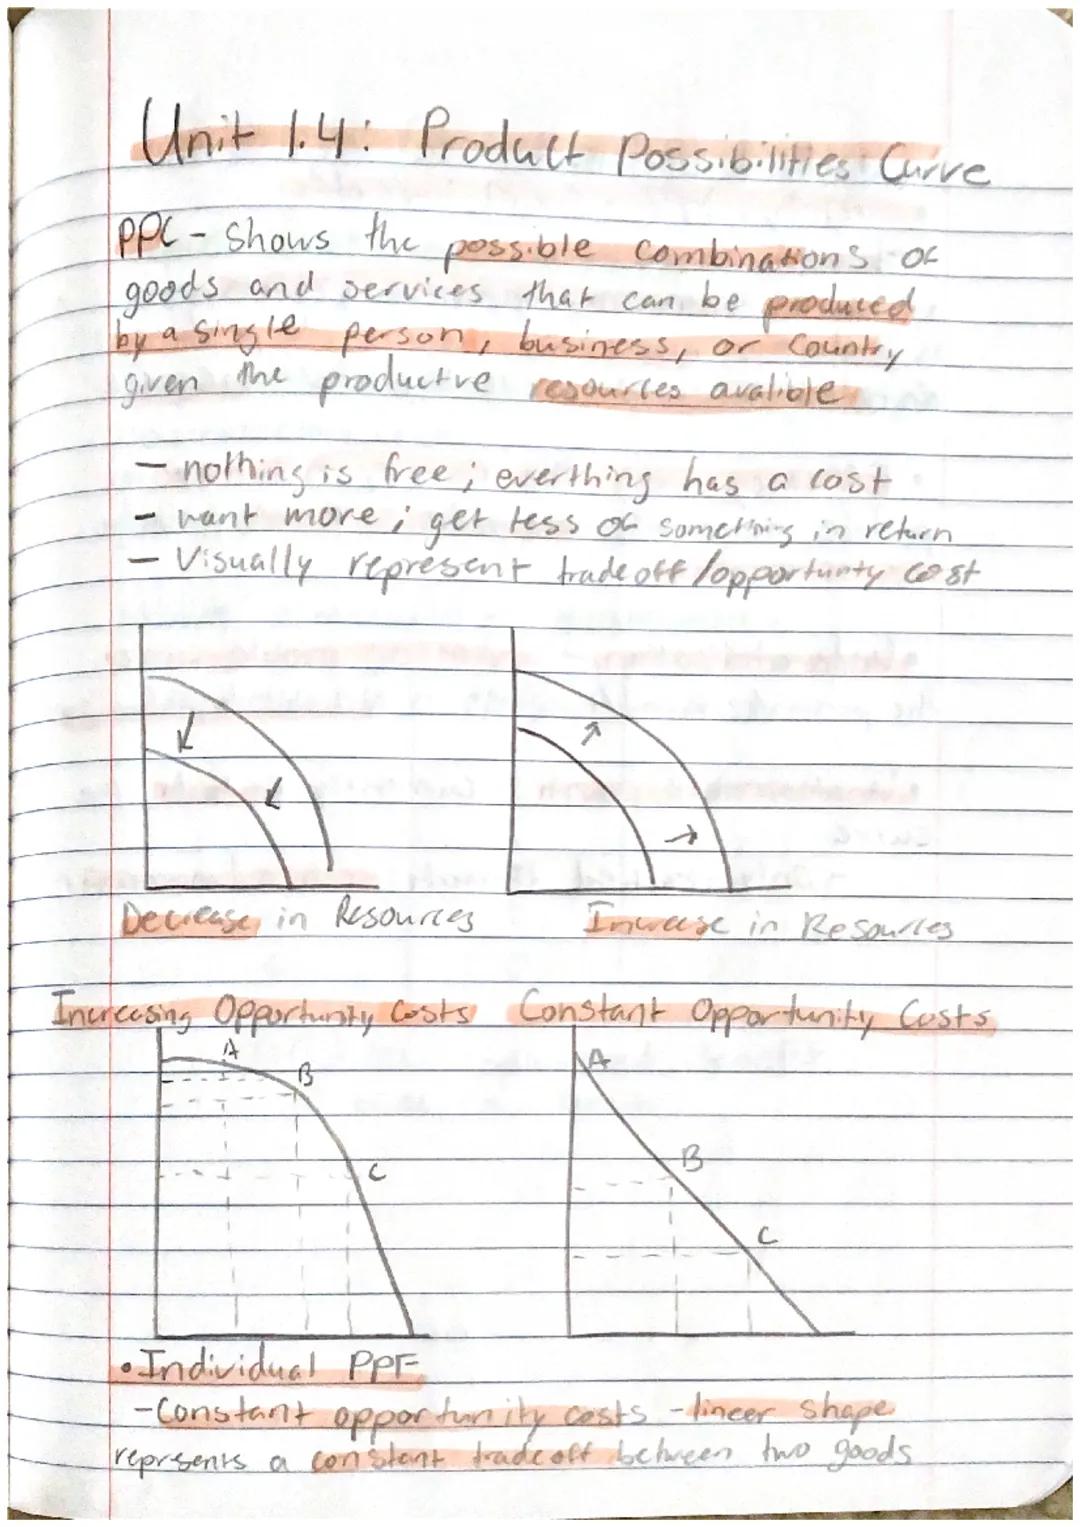 Unit 1.4: Product Possibilities Curve
PPC - Shows the possible combinations of
goods and services that can be produced
by a single person, business, or Country
given the productive resources avalible
- nothing is free; everthing has a cost
- want more; get less of something in return
- Visually represent tradeoff/opportunty cost
Decrease in Resources
Increase in Resources
Increasing Opportunity Costs
Constant Opportunity Costs
A
B
C
A
B
C
• Individual PPF
- Constant opportunity costs - lineer shape
reprsents a constant tradeoff between two goods